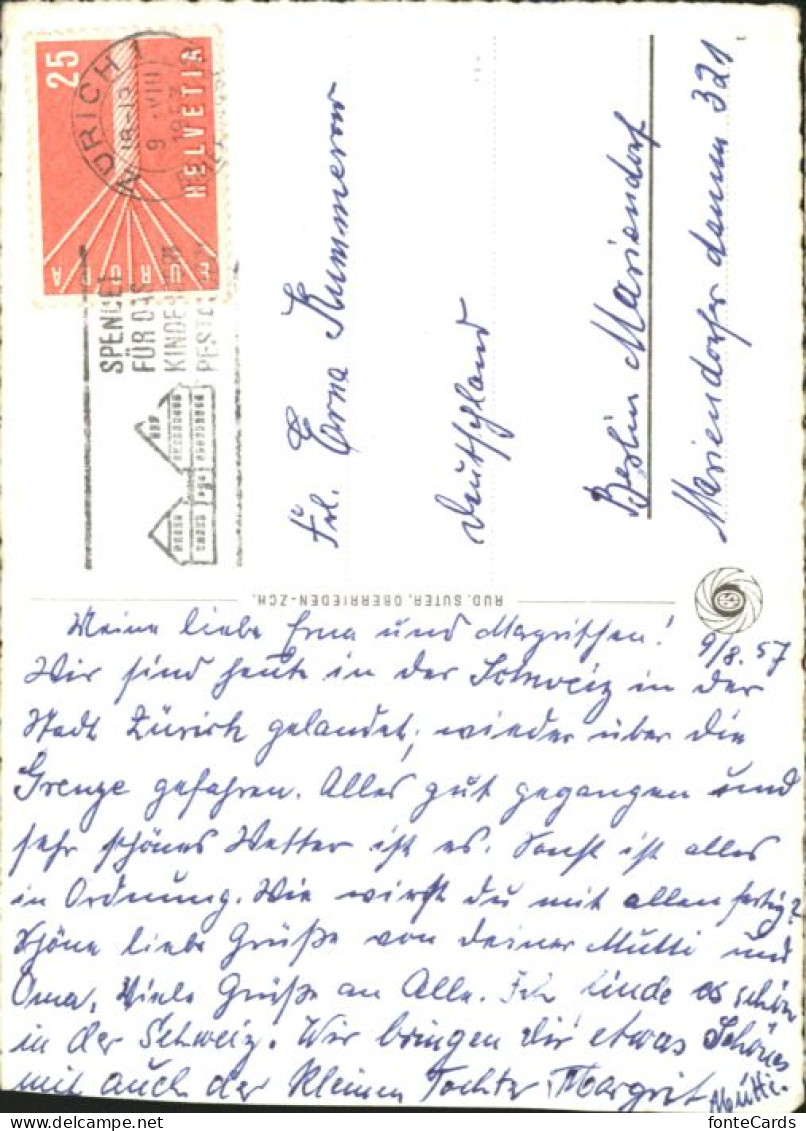 25
HELVETIA
EUROPA
ZÜRICH 1
18-19
9.-VIII
1957
SPENDET
FÜR DAS
KINDER
PESTAL
Frl. Erna Kummerow
Deutschland
Berlin Mariendorf
Mariendorfer damm 321
RUD. SUTER, OBERRIEDEN-ZCH.
9/8. 57
Meine liebe Erna und Magritchen!
Wir sind heute in der Schweiz in der
Stadt Zürich gelandet, wieder über die
Grenze gefahren. Alles gut gegangen und
sehr schönes Wetter ist es. Sonst ist alles
in Ordnung. Wie wirst du mit allen fertig?
Schöne liebe Grüße von deiner Mutti und
Oma. Viele Grüße an Alle. Ich finde es schön
in der Schweiz. Wir bringen dir etwas Schönes
mit auch der kleinen Tochter Margrit Mutti.
fonteCards